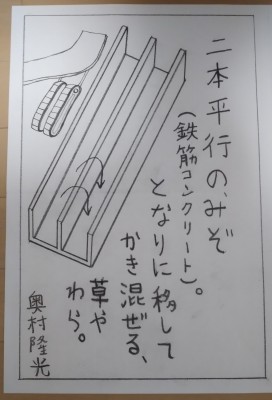 二本平行の、みぞ
(鉄筋コンクリート)。
となりに移して
かき混ぜる、
草や
わら。
奥村隆光